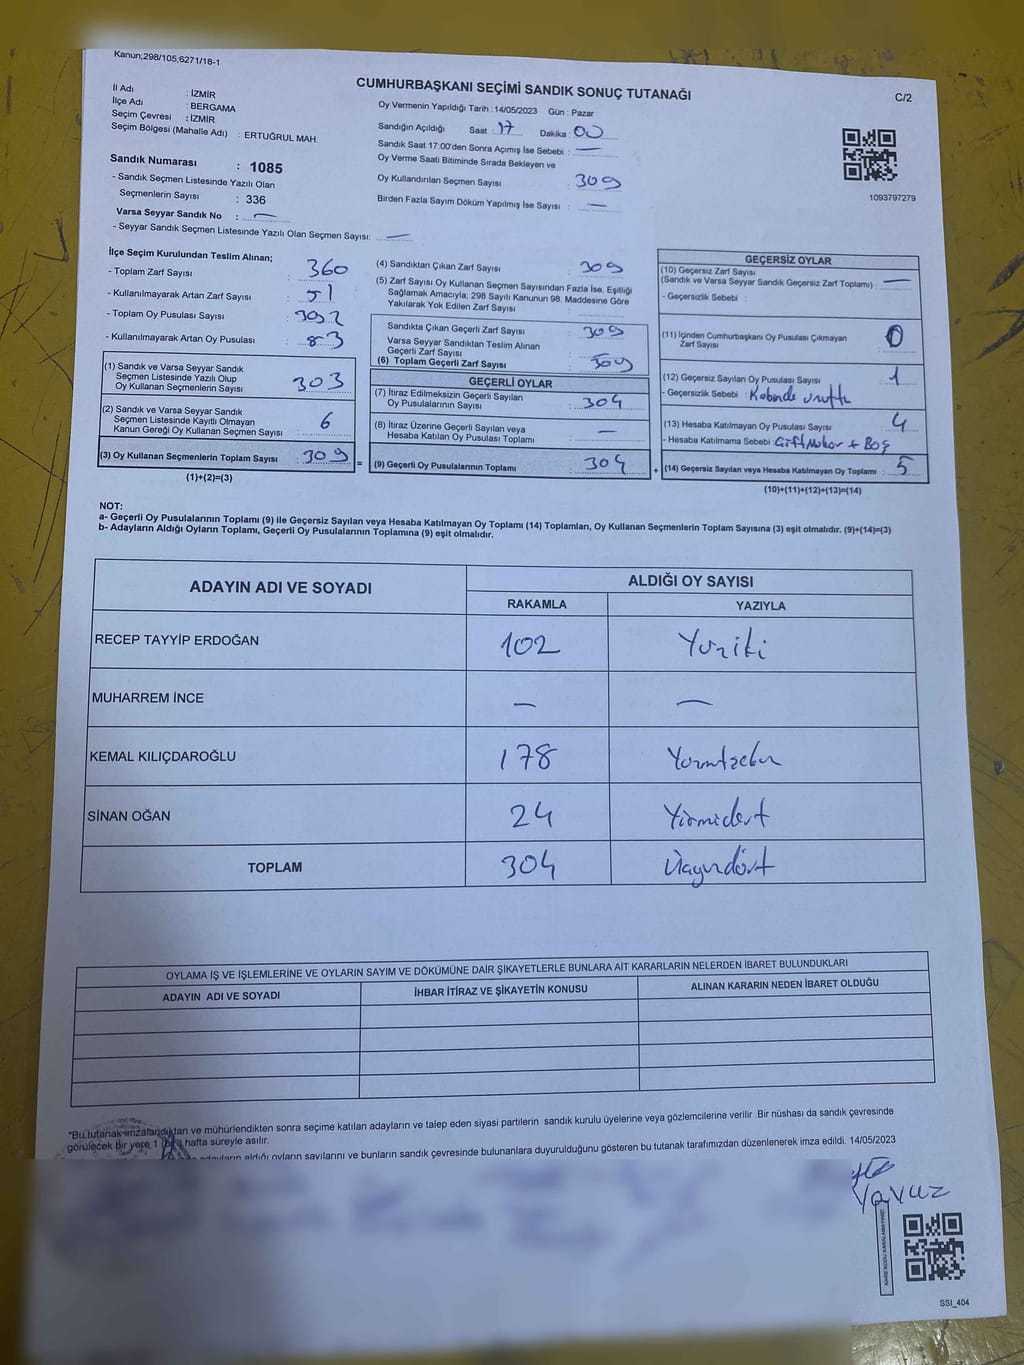 Kanun;298/105;6271/18-1
CUMHURBAŞKANI SEÇİMİ SANDIK SONUÇ TUTANAĞI
C/2
İl Adı : İZMİR
İlçe Adı : BERGAMA
Seçim Çevresi : İZMİR
Seçim Bölgesi (Mahalle Adı) : ERTUĞRUL MAH.
Sandık Numarası : 1085
- Sandık Seçmen Listesinde Yazılı Olan
Seçmenlerin Sayısı : 336
Varsa Seyyar Sandık No : —
- Seyyar Sandık Seçmen Listesinde Yazılı Olan Seçmen Sayısı: —
Oy Vermenin Yapıldığı Tarih : 14/05/2023 Gün : Pazar
Sandığın Açıldığı Saat : 17 Dakika : 00
Sandık Saat 17:00'den Sonra Açımış İse Sebebi : —
Oy Verme Saati Bitiminde Sırada Bekleyen ve
Oy Kullandırılan Seçmen Sayısı : 309
Birden Fazla Sayım Döküm Yapılmış İse Sayısı : —
1093797279
İlçe Seçim Kurulundan Teslim Alınan;
- Toplam Zarf Sayısı : 360
- Kullanılmayarak Artan Zarf Sayısı : 51
- Toplam Oy Pusulası Sayısı : 392
- Kullanılmayarak Artan Oy Pusulası : 83
(1) Sandık ve Varsa Seyyar Sandık
Seçmen Listesinde Yazılı Olup
Oy Kullanan Seçmenlerin Sayısı 303
(2) Sandık ve Varsa Seyyar Sandık
Seçmen Listesinde Kayıtlı Olmayan
Kanun Gereği Oy Kullanan Seçmen Sayısı : 6
(3) Oy Kullanan Seçmenlerin Toplam Sayısı 309 =
(1)+(2)=(3)
(4) Sandıktan Çıkan Zarf Sayısı : 309
(5) Zarf Sayısı Oy Kullanan Seçmen Sayısından Fazla İse, Eşitliği
Sağlamak Amacıyla, 298 Sayılı Kanunun 98. Maddesine Göre
Yakılarak Yok Edilen Zarf Sayısı :
Sandıkta Çıkan Geçerli Zarf Sayısı : 309
Varsa Seyyar Sandıktan Teslim Alınan
Geçerli Zarf Sayısı :
(6) Toplam Geçerli Zarf Sayısı : 309
GEÇERLİ OYLAR
(7) İtiraz Edilmeksizin Geçerli Sayılan
Oy Pusulalarının Sayısı : 304
(8) İtiraz Üzerine Geçerli Sayılan veya
Hesaba Katılan Oy Pusulası Toplamı : —
(9) Geçerli Oy Pusulalarının Toplamı : 304 +
GEÇERSİZ OYLAR
(10) Geçersiz Zarf Sayısı
(Sandık ve Varsa Seyyar Sandık Geçersiz Zarf Toplamı) : —
- Geçersizlik Sebebi :
(11) İçinden Cumhurbaşkanı Oy Pusulası Çıkmayan
Zarf Sayısı : 0
(12) Geçersiz Sayılan Oy Pusulası Sayısı : 1
- Geçersizlik Sebebi : Kabinde unuttu
(13) Hesaba Katılmayan Oy Pusulası Sayısı : 4
- Hesaba Katılmama Sebebi : Çift Mühür + Boş
(14) Geçersiz Sayılan veya Hesaba Katılmayan Oy Toplamı : 5
(10)+(11)+(12)+(13)=(14)
NOT:
a- Geçerli Oy Pusulalarının Toplamı (9) ile Geçersiz Sayılan veya Hesaba Katılmayan Oy Toplamı (14) Toplamları, Oy Kullanan Seçmenlerin Toplam Sayısına (3) eşit olmalıdır. (9)+(14)=(3)
b- Adayların Aldığı Oyların Toplamı, Geçerli Oy Pusulalarının Toplamına (9) eşit olmalıdır.
ADAYIN ADI VE SOYADI ALDIĞI OY SAYISI
RAKAMLA YAZIYLA
RECEP TAYYİP ERDOĞAN 102 Yüziki
MUHARREM İNCE — —
KEMAL KILIÇDAROĞLU 178
SİNAN OĞAN 24 Yirmidört
TOPLAM 304 Üçyüzdört
OYLAMA İŞ VE İŞLEMLERİNE VE OYLARIN SAYIM VE DÖKÜMÜNE DAİR ŞİKAYETLERLE BUNLARA AİT KARARLARIN NELERDEN İBARET BULUNDUKLARI
ADAYIN ADI VE SOYADI İHBAR İTİRAZ VE ŞİKAYETİN KONUSU ALINAN KARARIN NEDEN İBARET OLDUĞU
*Bu tutanak imzalandıktan ve mühürlendikten sonra seçime katılan adayların ve talep eden siyasi partilerin sandık kurulu üyelerine veya gözlemcilerine verilir. Bir nüshası da sandık çevresinde
görülecek bir yere 1 hafta süreyle asılır.
aldığı oyların sayılarını ve bunların sandık çevresinde bulunanlara duyurulduğunu gösteren bu tutanak tarafımızdan düzenlenerek imza edildi. 14/05/2023
Yavuz
KARE KODU KARALAMAYINIZ!
SSI_404